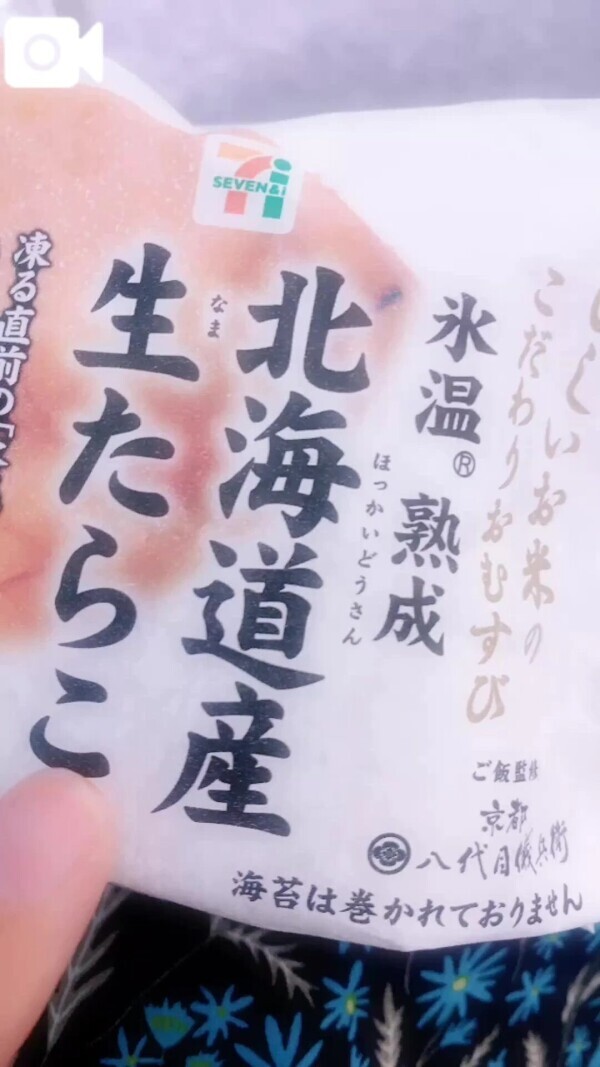 SEVEN&i
いお米の
こだわりおむすび
氷温®
熟成
ほっかいどうさん
北海道産
なま
生たらこ
凍る直前の「
ご飯監修
京都
八代目儀兵衛
海苔は巻かれておりません